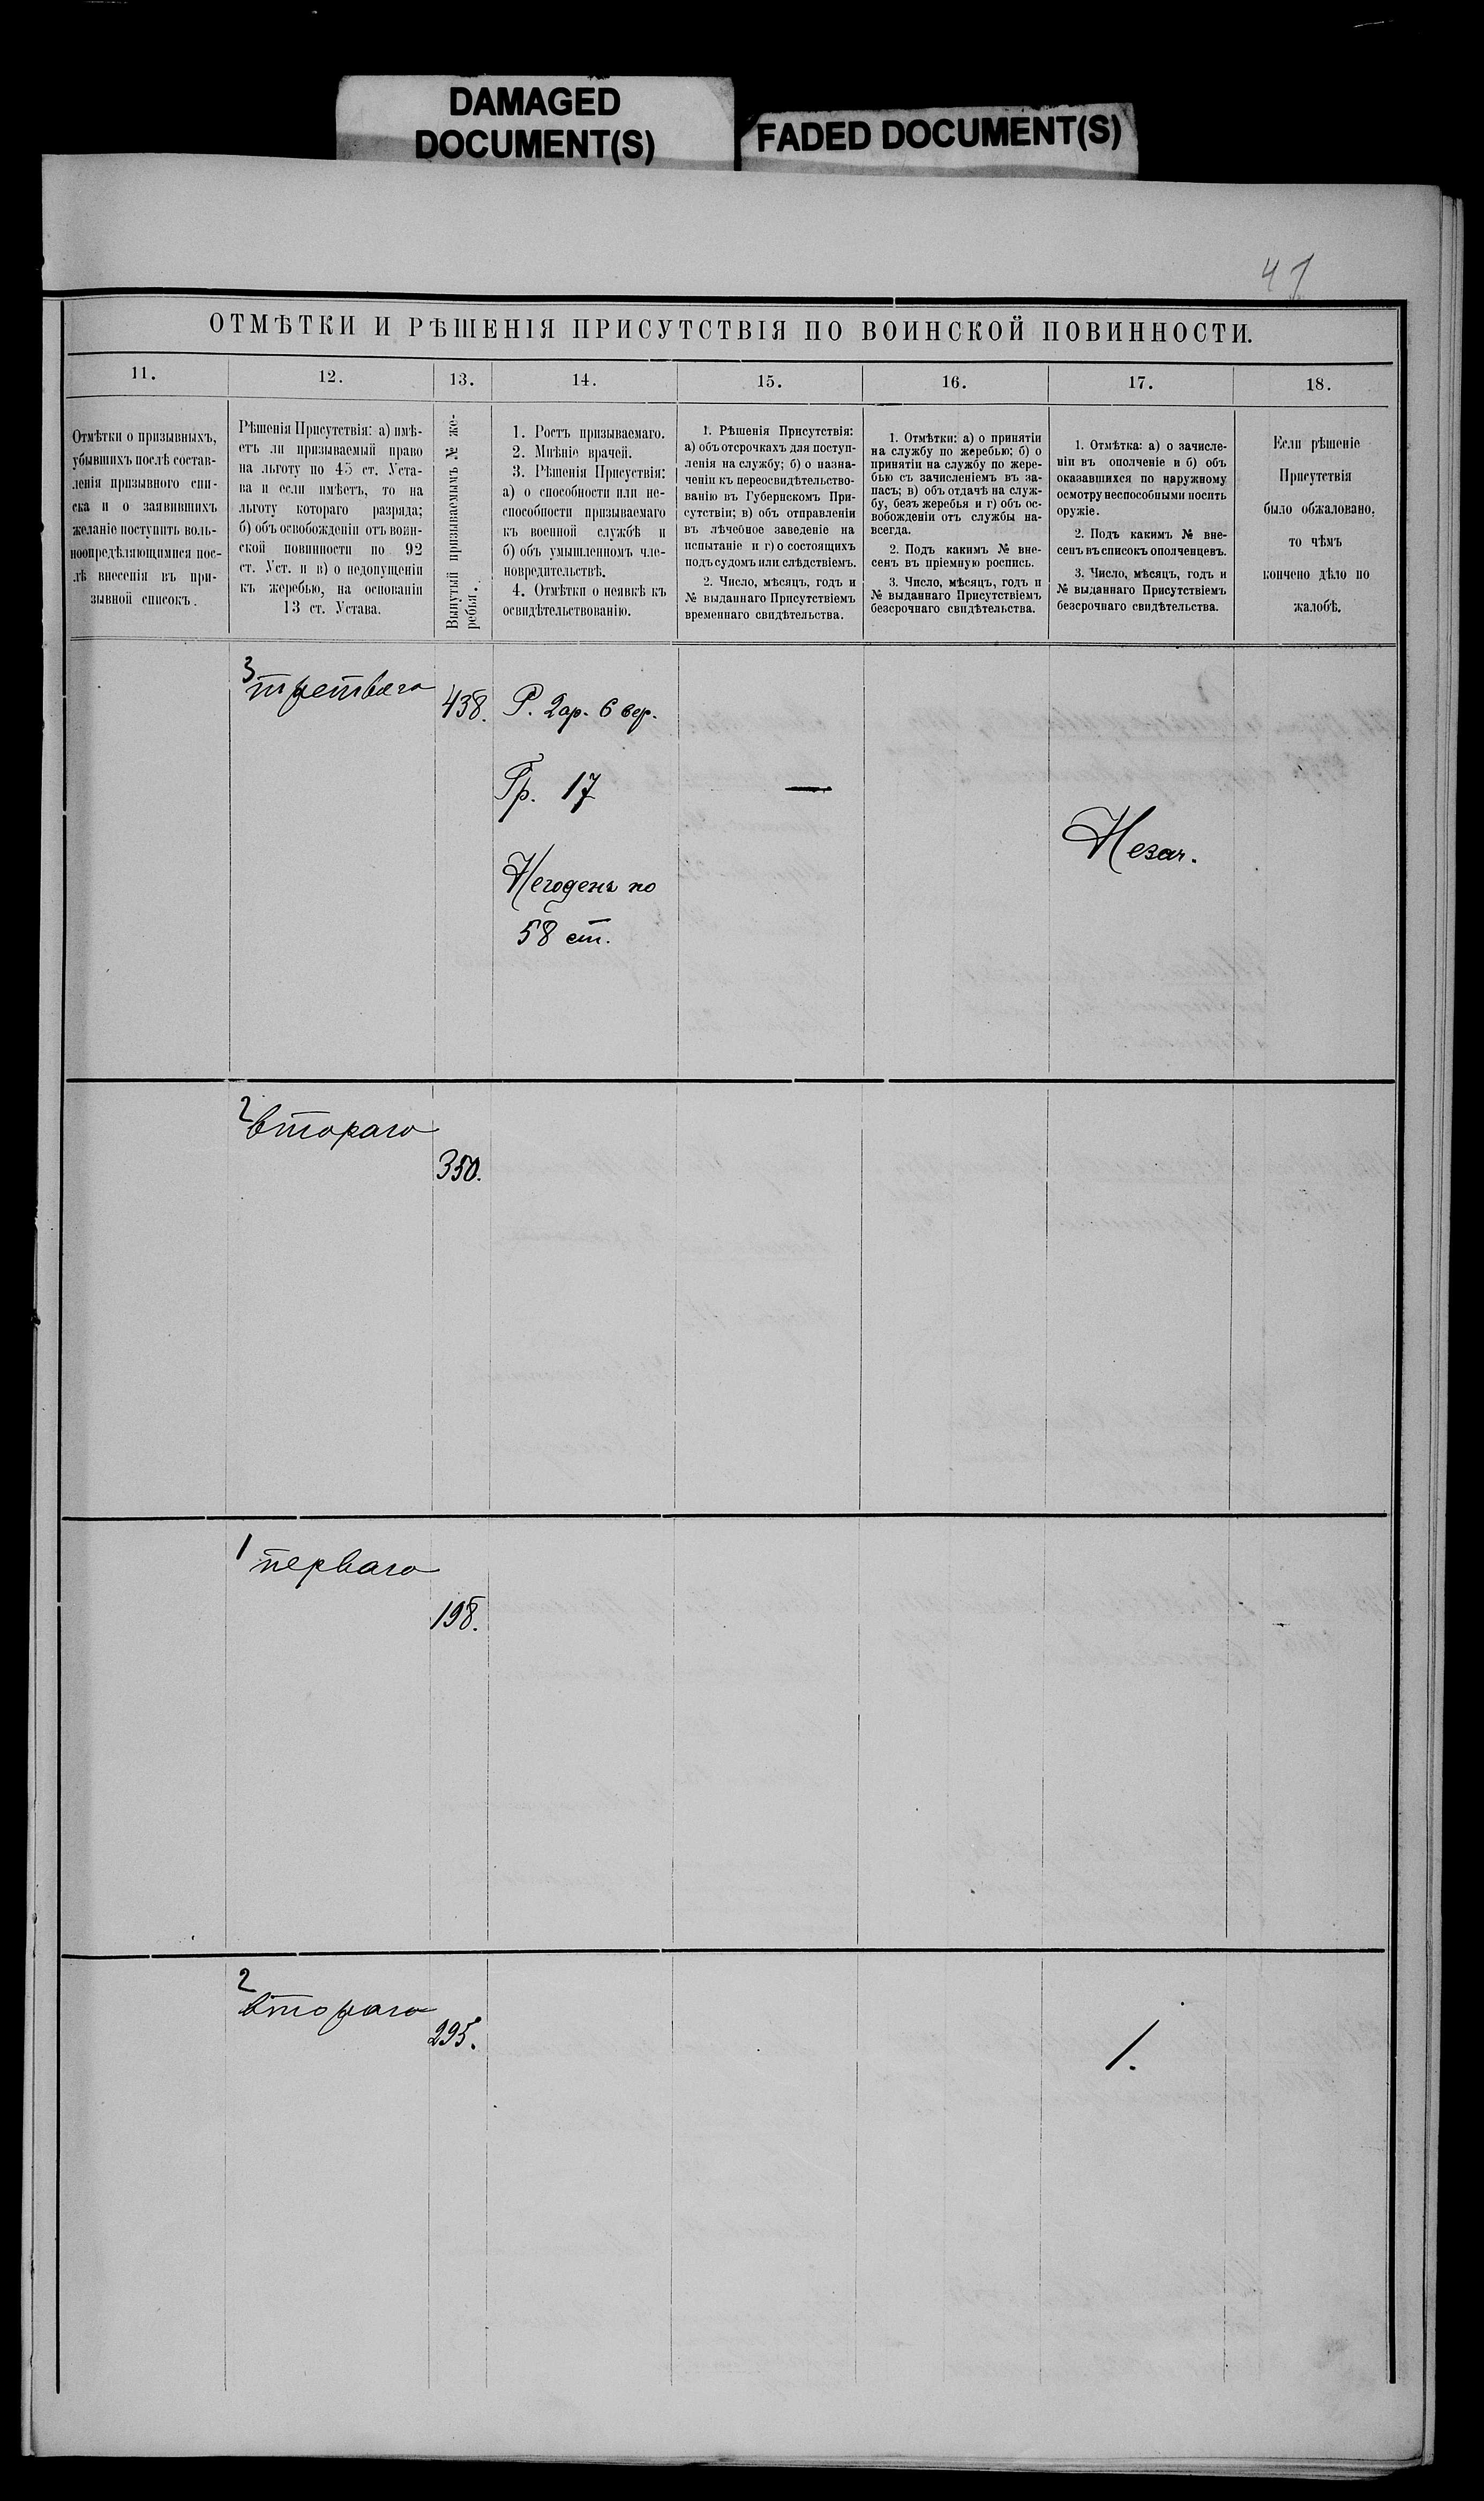 DAMAGED
DOCUMENT(S)
FADED DOCUMENT(S)
47
ОТМѢТКИ И РѢШЕНІЯ ПРИСУТСТВІЯ ПО ВОИНСКОЙ ПОВИННОСТИ.
11.
12.
13.
14.
15.
16.
17.
18.
Отмѣтки о призывныхъ,
убывшихъ послѣ состав-
ленія призывного спи-
ска и о заявившихъ
желаніе поступить воль-
ноопредѣляющимися пос-
лѣ внесенія въ при-
зывной списокъ.
Рѣшенія Присутствія: а) имѣ-
етъ ли призываемый право
на льготу по 45 ст. Уста-
ва и если имѣетъ, то на
льготу котораго разряда;
б) объ освобожденіи отъ воин-
ской повинности по 92
ст. Уст. и в) о недопущеніи
къ жеребью, на основаніи
13 ст. Устава.
Вынутый призываемымъ № же-
ребья.
1. Ростъ призываемаго.
2. Мнѣніе врачей.
3. Рѣшенія Присуствія:
а) о способности или не-
способности призываемаго
къ военной службѣ и
б) объ умышленномъ чле-
новредительствѣ.
4. Отмѣтки о неявкѣ къ
освидѣтельствованію.
1. Рѣшенія Присутствія:
а) объ отсрочкахъ для поступ-
ленія на службу; б) о назна-
ченіи къ переосвидѣтельство-
ванію въ Губернскомъ При-
сутствіи; в) объ отправленіи
въ лѣчебное заведеніе на
испытаніе и г) о состоящихъ
подъ судомъ или слѣдствіемъ.
2. Число, мѣсяцъ, годъ и
№ выданнаго Присутствіемъ
временнаго свидѣтельства.
1. Отмѣтки: а) о принятіи
на службу по жеребью; б) о
принятіи на службу по жере-
бью съ зачисленіемъ въ за-
пасъ; в) объ отдачѣ на служ-
бу, безъ жеребья и г) объ ос-
вобожденіи отъ службы на-
всегда.
2. Подъ какимъ № вне-
сенъ въ пріемную роспись.
3. Число, мѣсяцъ, годъ и
№ выданнаго Присутствіемъ
безсрочнаго свидѣтельства.
1. Отмѣтка: а) о зачисле-
ніи въ ополченіе и б) объ
оказавшихся по наружному
осмотру неспособными носить
оружіе.
2. Подъ какимъ № вне-
сенъ въ списокъ ополченцевъ.
3. Число, мѣсяцъ, годъ и
№ выданнаго Присутствіемъ
безсрочнаго свидѣтельства.
Если рѣшеніе
Присутствія
было обжаловано,
то чѣмъ
кончено дѣло по
жалобѣ.
3
третьяго
438.
Р. 2 ар. 6 вер.
Гр. 17
Негоденъ по
58 ст.
—
Незач.
2
втораго
350.
1
перваго
198.
2
втораго
295.
1.